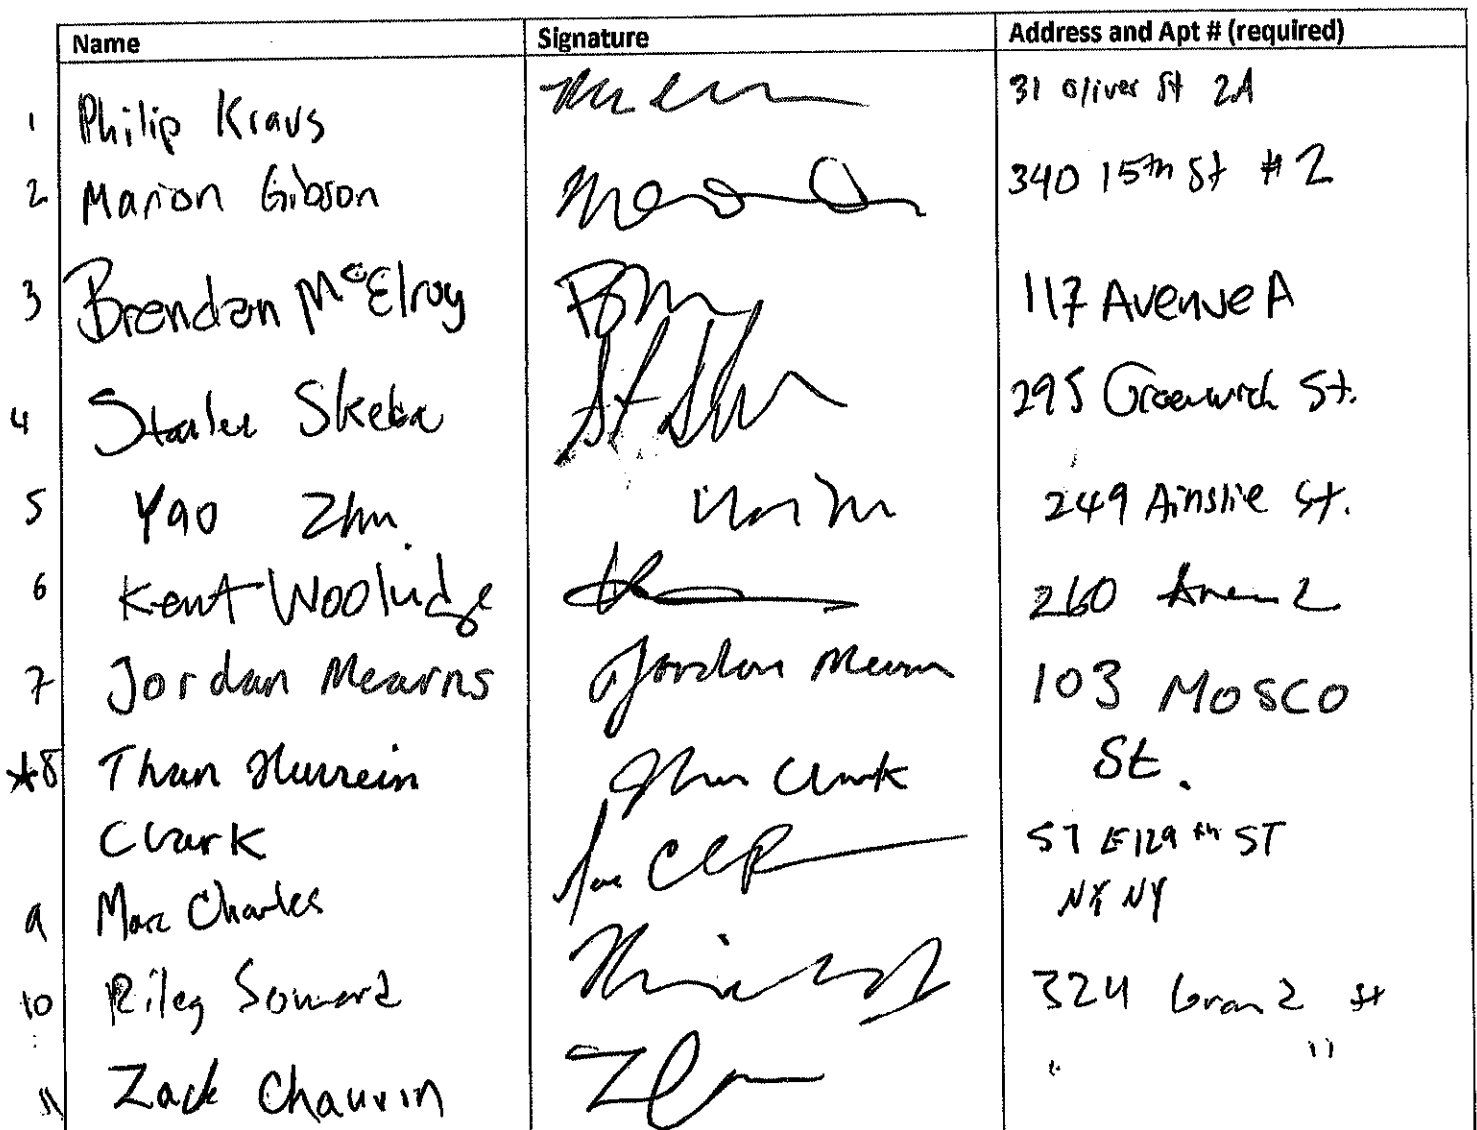 Name Signature Address and Apt # (required)
1 Philip Kraus 31 Oliver St 2A
2 Marion Gibson 340 15th St #2
3 Brendan McElroy BM 117 Avenue A
4 Skeba 295 Greenwich St.
5 Yao Zhu 249 Ainslie St.
6 Kent Woolridge 260
7 Jordan Mearns Jordan Mearns 103 Mosco
St.
*8 Than Hussein Clark
Clark 57 E 129th ST
9 Marc Charles NY NY
10 Riley 324 Grand St
11 Zack Chauvin " "